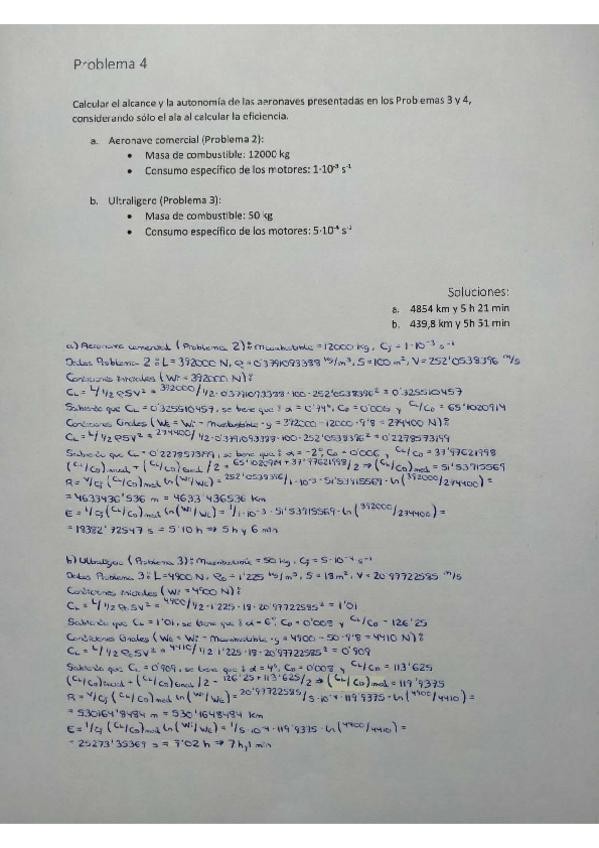 Problema 4
Calcular el alcance y la autonomía de las aeronaves presentadas en los Problemas 3 y 4,
considerando sólo el ala al calcular la eficiencia.
a. Aeronave comercial (Problema 2):
• Masa de combustible: 12000 kg
• Consumo específico de los motores: 1·10⁻³ s⁻¹
b. Ultraligero (Problema 3):
• Masa de combustible: 50 kg
• Consumo específico de los motores: 5·10⁻⁴ s⁻¹
Soluciones:
a. 4854 km y 5 h 21 min
b. 439,8 km y 5h 51 min
a) Aeronave comercial (Problema 2): mcombustible = 12000 kg, Cj = 1·10⁻³ s⁻¹
Datos Problema 2: L = 392000 N, ρ = 0'3791093388 kg/m³, S = 100 m², V = 252'0538396 m/s
Condiciones Iniciales (Wi = 392000 N):
CL = L/½ρSV² = 392000/½·0'3791093388·100·252'0538396² = 0'325510457
Sabiendo que CL = 0'325510457, se tiene que: α = 0'74°, CD = 0'005 y CL/CD = 65'1020914
Condiciones Finales (We = Wi - mcombustible·g = 392000 - 12000·9'8 = 274400 N):
CL = L/½ρSV² = 274400/½·0'3791093388·100·252'0538396² = 0'2278573199
Sabiendo que CL = 0'2278573199, se tiene que: α = -2°, CD = 0'006, CL/CD = 37'97621998
(CL/CD)med = (CL/CD)inicial + (CL/CD)final/2 = 65'1020914 + 37'97621998/2 ⇒ (CL/CD)med = 51'53915569
R = V/Cj (CL/CD)med ln(Wi/We) = 252'0538396/1·10⁻³·51'53915569·ln(392000/274400) =
= 4633436'536 m = 4633'436536 km
E = 1/Cj (CL/CD)med ln(Wi/We) = 1/1·10⁻³·51'53915569·ln(392000/274400) =
= 18382'72547 s = 5'10 h ⇒ 5 h y 6 min
b) Ultraligero (Problema 3): mcombustible = 50 kg, Cj = 5·10⁻⁴ s⁻¹
Datos Problema 3: L = 4900 N, ρ0 = 1'225 kg/m³, S = 18 m², V = 20'97722585 m/s
Condiciones Iniciales (Wi = 4900 N):
CL = L/½ρ0SV² = 4900/½·1'225·18·20'97722585² = 1'01
Sabiendo que CL = 1'01, se tiene que: α = 6°, CD = 0'008 y CL/CD = 126'25
Condiciones Finales (We = Wi - mcombustible·g = 4900 - 50·9'8 = 4410 N):
CL = L/½ρ0SV² = 4410/½·1'225·18·20'97722585² = 0'909
Sabiendo que CL = 0'909, se tiene que: α = 4°, CD = 0'008 y CL/CD = 113'625
(CL/CD)inicial + (CL/CD)final/2 = 126'25 + 113'625/2 ⇒ (CL/CD)med = 119'9375
R = V/Cj (CL/CD)med ln(Wi/We) = 20'97722585/5·10⁻⁴·119'9375·ln(4900/4410) =
= 530164'8484 m = 530'1648484 km
E = 1/Cj (CL/CD)med ln(Wi/We) = 1/5·10⁻⁴·119'9375·ln(4900/4410) =
= 25273'35369 s = 7'02 h ⇒ 7 h, 1 min